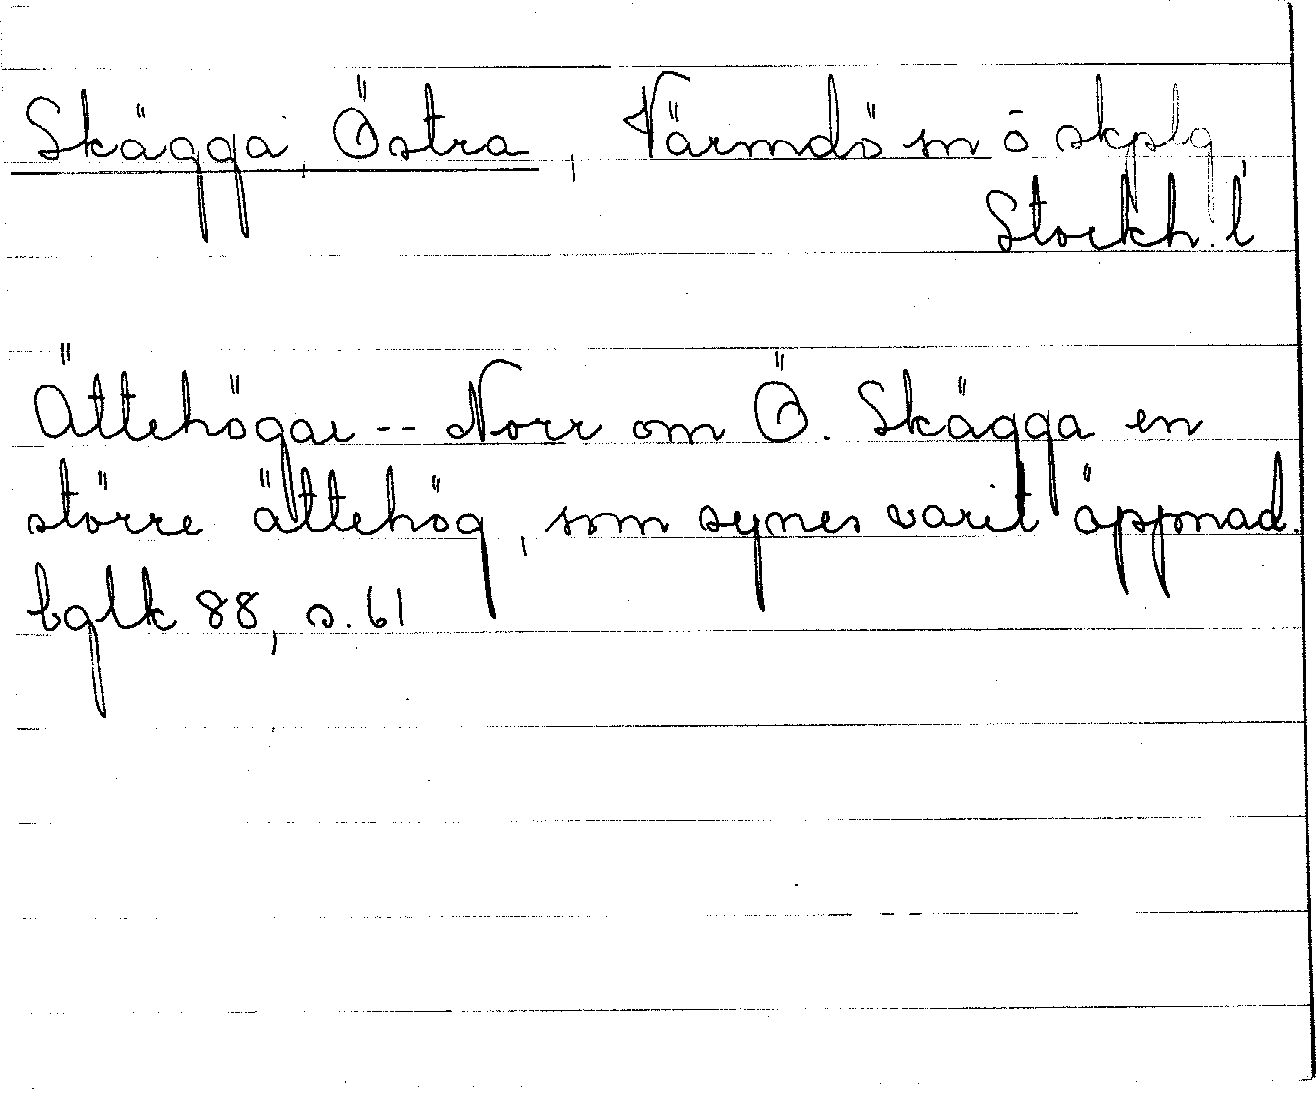 Skägga, Östra, Värmdö sn o skplg,
Stockh. l
Ättehögar -- Norr om Ö. Skägga en
större ättehög, som synes varit öppnad.
bglk 88, s. 61